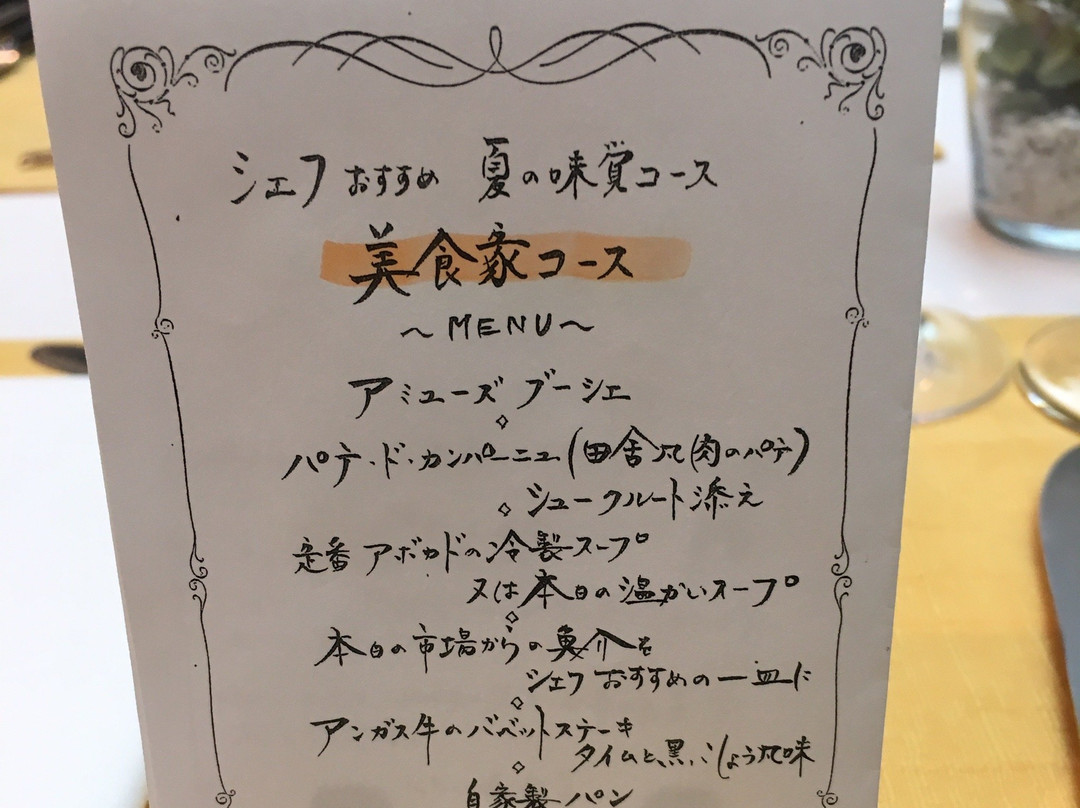 シェフおすすめ 夏の味覚コース
美食家コース
～MENU～
アミューズ ブーシェ
パテ・ド・カンパーニュ(田舎風肉のパテ)
シュークルート添え
定番 アボカドの冷製スープ
又は本日の温かいスープ
本日の市場からの魚介を
シェフおすすめの一皿に
アンガス牛のバベットステーキ
タイムと黒こしょう風味
自家製パン